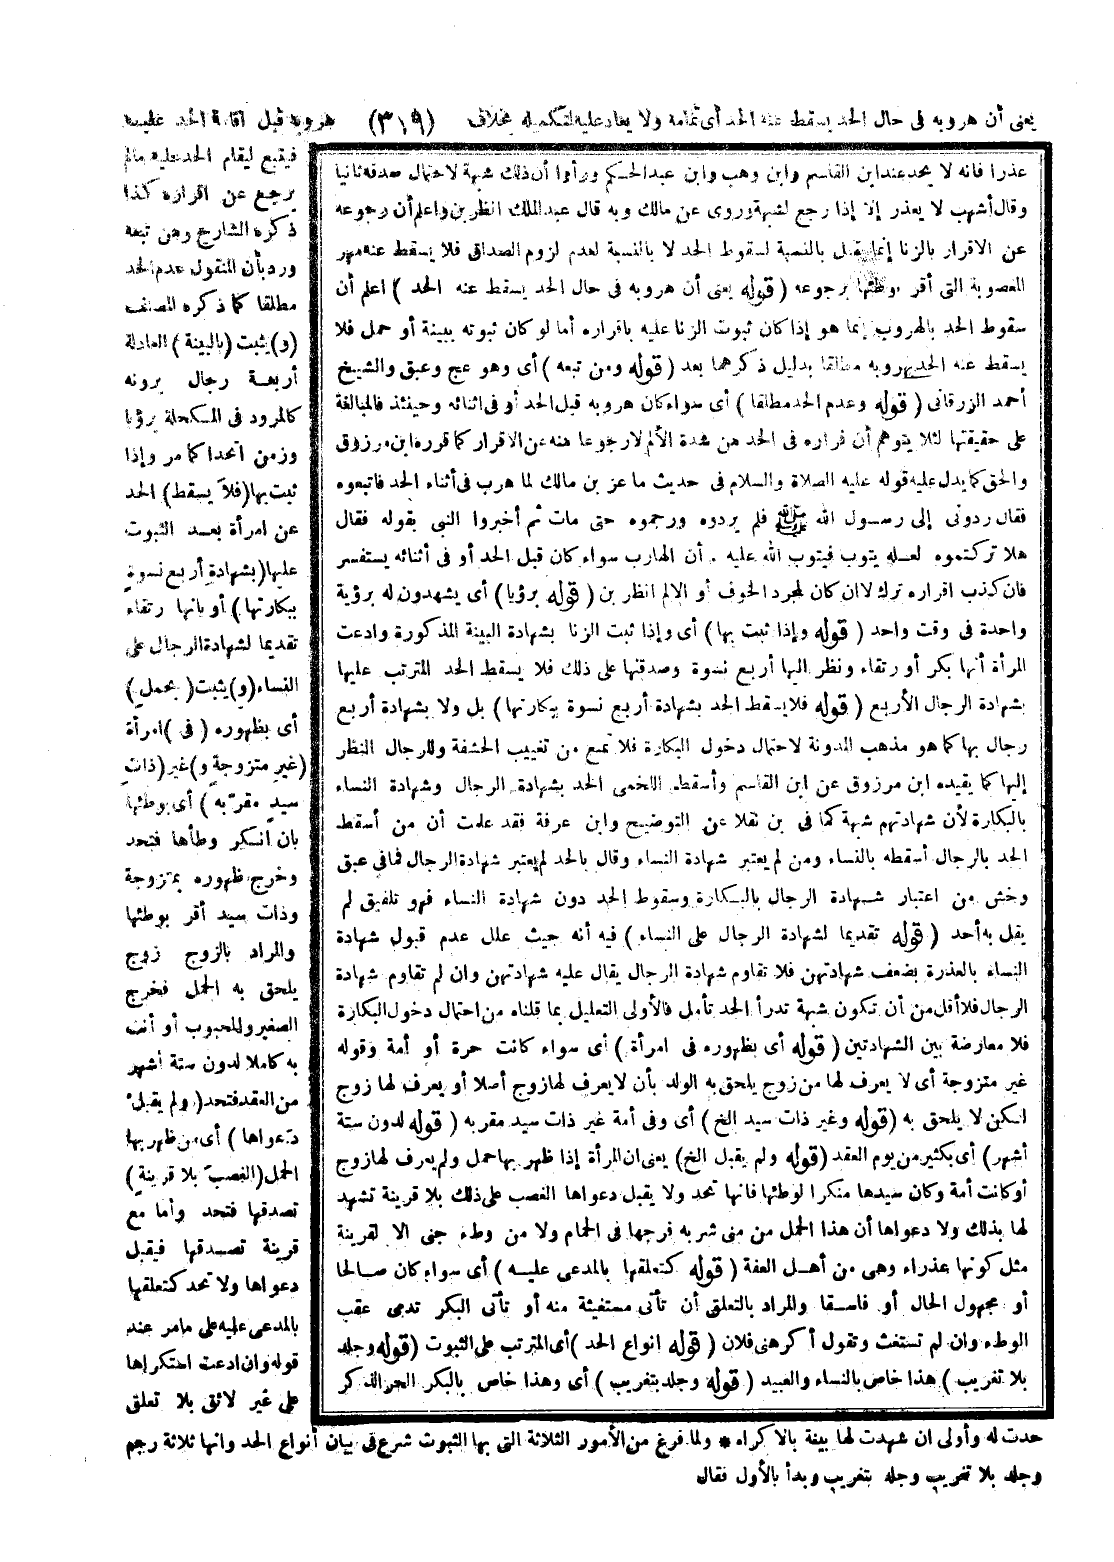 يعنى أن هروبه فى حال الحد يسقط عنه الحد أى تمامه ولا يعاد عليه لتكمله بخلاف (٣١٩) هروبه قبل اقامة الحد عليه
فيتبع ليقام الحد عليه مالم
يرجع عن اقراره كذا
ذكره الشارح ومن تبعه
ورد بأن المنقول عدم الحد
مطلقا كما ذكره المصنف
(و) يثبت (بالبينة) العادلة
أربعة رجال يرونه
كالمرود فى المكحلة برؤيا
وزمن اتحدا كما مر وإذا
ثبت بها (فلا يسقط) الحد
عن امرأة بعد الثبوت
عليها (بشهادة أربع نسوة
ببكارتها) أو بانها رتقاء
تقديما لشهادة الرجال على
النساء (و) يثبت (بحمل)
أى بظهوره (فى) امرأة
(غير متزوجة و) غير (ذات
سيد مقر به) أى بوطئها
بان أنكر وطأها فتحد
وخرج ظهوره بمتزوجة
وذات سيد أقر بوطئها
والمراد بالزوج زوج
يلحق به الحمل فخرج
الصغير والمجبوب أو أتت
به كاملا لدون ستة أشهر
من العقد فتحد (ولم يقبل
دعواها) أى من ظهر بها
الحمل (الغصب بلا قرينة)
تصدقها فتحد وأما مع
قرينة تصدقها فيقبل
دعواها ولا تحد كتعلقها
بالمدعى عليه على مامر عند
قوله وان ادعت استكراها
على غير لائق بلا تعلق
عذرا فانه لا يحد عند ابن القاسم وابن وهب وابن عبد الحكم ورأوا أن ذلك شبهة لاحتمال صدقه ثانيا
وقال أشهب لا يعذر إلا إذا رجع لشبهة وروى عن مالك وبه قال عبد الملك انظر بن واعلم أن رجوعه
عن الاقرار بالزنا إنما يقبل بالنسبة لسقوط الحد لا بالنسبة لعدم لزوم الصداق فلا يسقط عنه مهر
المغصوبة التى أقر بوطئها برجوعه (قوله يعنى أن هروبه فى حال الحد يسقط عنه الحد) اعلم أن
سقوط الحد بالهروب إنما هو إذا كان ثبوت الزنا عليه باقراره أما لو كان ثبوته ببينة أو حمل فلا
يسقط عنه الحد بهروبه مطلقا بدليل ذكرهما بعد (قوله ومن تبعه) أى وهو عج وعبق والشيخ
أحمد الزرقانى (قوله وعدم الحد مطلقا) أى سواء كان هروبه قبل الحد أو فى اثنائه وحينئذ فالمبالغة
على حقيقتها لئلا يتوهم أن فراره فى الحد من شدة الألم لارجوعا منه عن الاقرار كما قرره ابن مرزوق
والحق كما يدل عليه قوله عليه الصلاة والسلام فى حديث ماعز بن مالك لما هرب فى أثناء الحد فاتبعوه
فقال ردونى إلى رسول الله ﷺ فلم يردوه ورجموه حتى مات ثم أخبروا النبى بقوله فقال
هلا تركتموه لعله يتوب فيتوب الله عليه . أن الهارب سواء كان قبل الحد أو فى أثنائه يستفسر
فان كذب اقراره ترك لا ان كان لمجرد الخوف أو الالم انظر بن (قوله برؤيا) أى يشهدون له برؤية
واحدة فى وقت واحد (قوله وإذا ثبت بها) أى وإذا ثبت الزنا بشهادة البينة المذكورة وادعت
المرأة أنها بكر أو رتقاء ونظر اليها أربع نسوة وصدقنها على ذلك فلا يسقط الحد المترتب عليها
بشهادة الرجال الأربع (قوله فلا يسقط الحد بشهادة أربع نسوة ببكارتها) بل ولا بشهادة أربع
رجال بها كما هو مذهب المدونة لاحتمال دخول البكارة فلا تمنع من تغييب الحشفة وللرجال النظر
إليها كما يقيده ابن مرزوق عن ابن القاسم وأسقط اللخمى الحد بشهادة الرجال وشهادة النساء
بالبكارة لأن شهادتهم شبهة كما فى بن نقلا عن التوضيح وابن عرفة فقد علمت أن من أسقط
الحد بالرجال أسقطه بالنساء ومن لم يعتبر شهادة النساء وقال بالحد لم يعتبر شهادة الرجال فما فى عبق
وخش من اعتبار شهادة الرجال بالبكارة وسقوط الحد دون شهادة النساء فهو تلفيق لم
يقل به أحد (قوله تقديما لشهادة الرجال على النساء) فيه أنه حيث علل عدم قبول شهادة
النساء بالعذرة بضعف شهادتهن فلا تقاوم شهادة الرجال يقال عليه شهادتهن وان لم تقاوم شهادة
الرجال فلا أقل من أن تكون شبهة تدرأ الحد تأمل فالأولى التعليل بما قلناه من احتمال دخول البكارة
فلا معارضة بين الشهادتين (قوله أى بظهوره فى امرأة) أى سواء كانت حرة أو أمة وقوله
غير متزوجة أى لا يعرف لها من زوج يلحق به الولد بأن لا يعرف لها زوج أصلا أو يعرف لها زوج
لكن لا يلحق به (قوله وغير ذات سيد الخ) أى وفى أمة غير ذات سيد مقر به (قوله لدون ستة
أشهر) أى بكثير من يوم العقد (قوله ولم يقبل الخ) يعنى ان المرأة إذا ظهر بها حمل ولم يعرف لها زوج
أو كانت أمة وكان سيدها منكرا لوطئها فانها تحد ولا يقبل دعواها الغصب على ذلك بلا قرينة تشهد
لها بذلك ولا دعواها أن هذا الحمل من منى شربه فرجها فى الحمام ولا من وطء جنى الا لقرينة
مثل كونها عذراء وهى من أهل العفة (قوله كتعلقها بالمدعى عليه) أى سواء كان صالحا
أو مجهول الحال أو فاسقا والمراد بالتعلق أن تأتى مستغيثة منه أو تأتى البكر تدمى عقب
الوطء وان لم تستغث وتقول أكرهنى فلان (قوله انواع الحد) أى المترتب على الثبوت (قوله وجلد
بلا تغريب) هذا خاص بالنساء والعبيد (قوله وجلد بتغريب) أى وهذا خاص بالبكر الحر الذكر
حدت له وأولى ان شهدت لها بينة بالاكراه * ولما فرغ من الأمور الثلاثة التى بها الثبوت شرع فى بيان أنواع الحد وانها ثلاثة رجم
وجلد بلا تغريب وجلد بتغريب وبدأ بالأول فقال